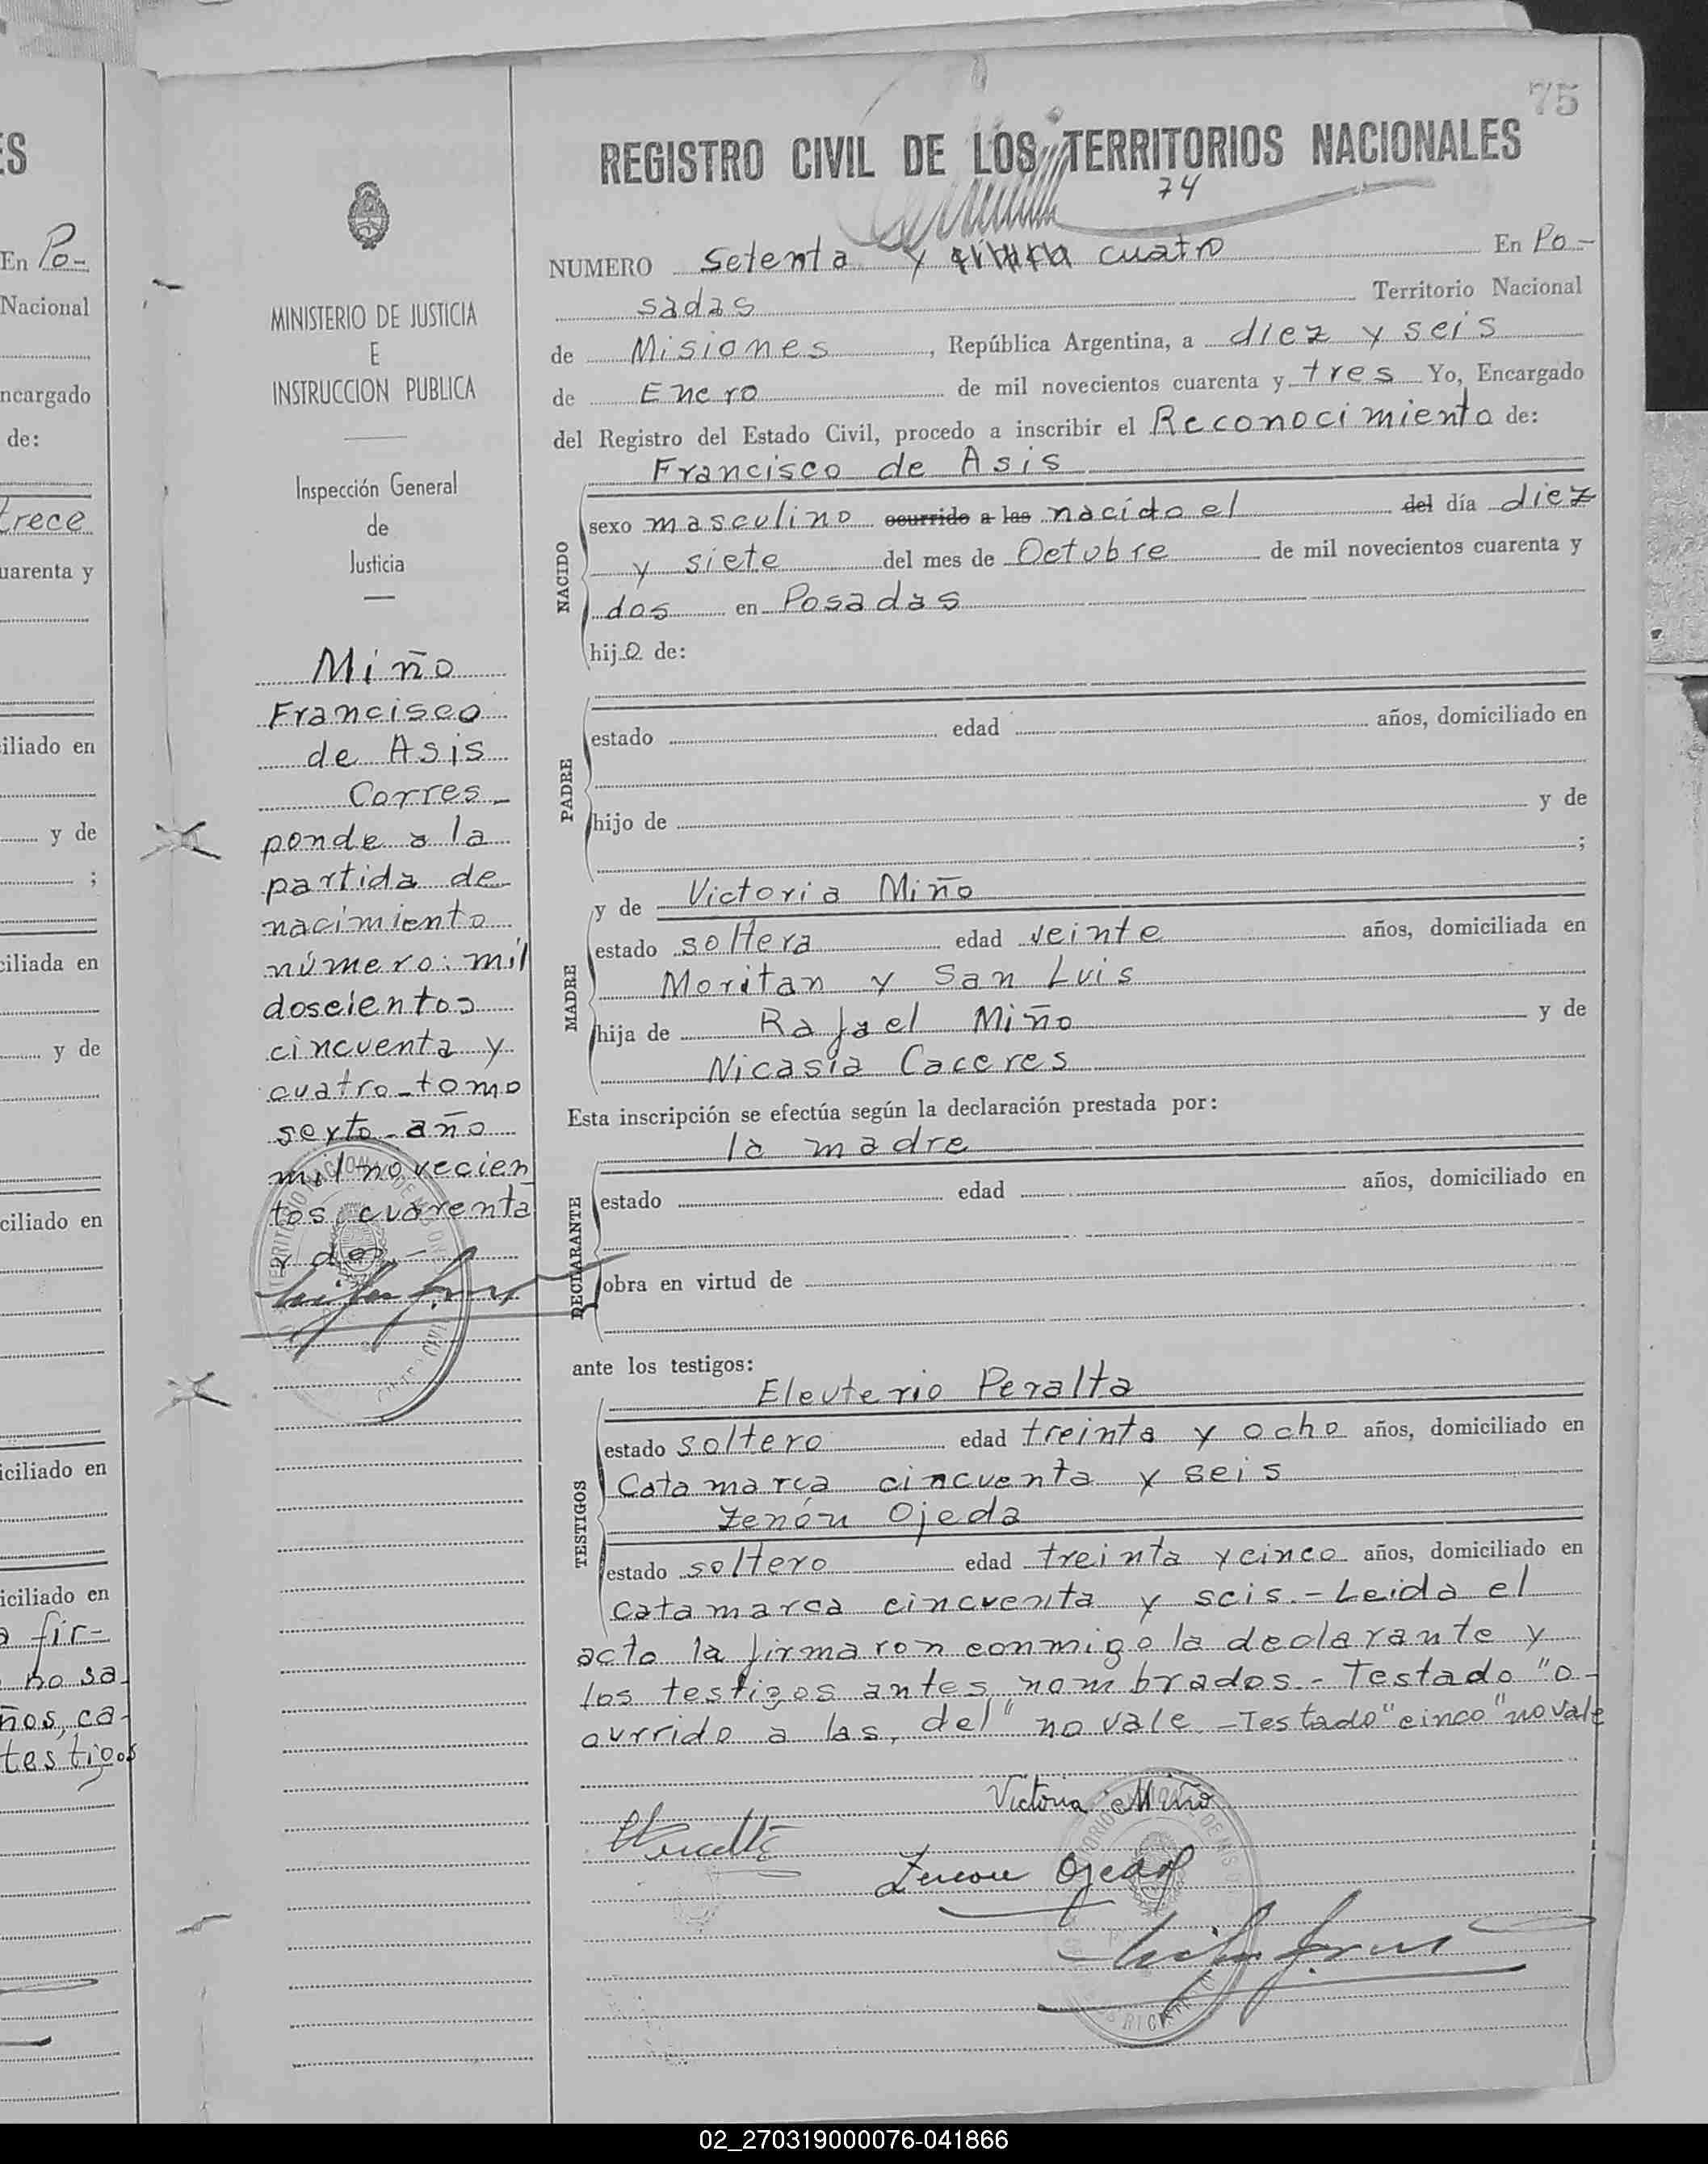 ES
En Po-
Nacional
ncargado
de:
trece
uarenta y
iliado en
y de
;
ciliada en
y de
ciliado en
iciliado en
iciliado en
fir-
no sa
ños, ca-
testigos
MINISTERIO DE JUSTICIA
E
INSTRUCCION PUBLICA
Inspección General
de
Justicia
Miño
Francisco
de Asis
Corres-
ponde a la
partida de
nacimiento
número: mil
doscientos
cincuenta y
cuatro-tomo
sexto-año
mil novecien
tos cuarenta
y dos.-
75
REGISTRO CIVIL DE LOS TERRITORIOS NACIONALES
74
NUMERO Setenta y cuatro En Po-
sadas Territorio Nacional
de Misiones, República Argentina, a diez y seis
de Enero de mil novecientos cuarenta y tres Yo, Encargado
del Registro del Estado Civil, procedo a inscribir el Reconocimiento de:
Francisco de Asis
NACIDO
sexo masculino ocurrido a las nacido el del día diez
y siete del mes de Octubre de mil novecientos cuarenta y
dos en Posadas
hijo de:
PADRE
estado edad años, domiciliado en
hijo de y de
;
y de Victoria Miño
MADRE
estado soltera edad veinte años, domiciliada en
Moritan y San Luis
hija de Rafael Miño y de
Nicasia Caceres
Esta inscripción se efectúa según la declaración prestada por:
la madre
DECLARANTE
estado edad años, domiciliado en
obra en virtud de
ante los testigos:
Eleuterio Peralta
TESTIGOS
estado soltero edad treinta y ocho años, domiciliado en
Catamarca cincuenta y seis
Zenón Ojeda
estado soltero edad treinta y cinco años, domiciliado en
Catamarca cincuenta y seis.- Leida el
acto la firmaron conmigo la declarante y
los testigos antes nombrados.- Testado "o-
currido a las, del" no vale.-Testado "cinco" no vale
Victoria Miño
Zenon Ojeda
02_270319000076-041866